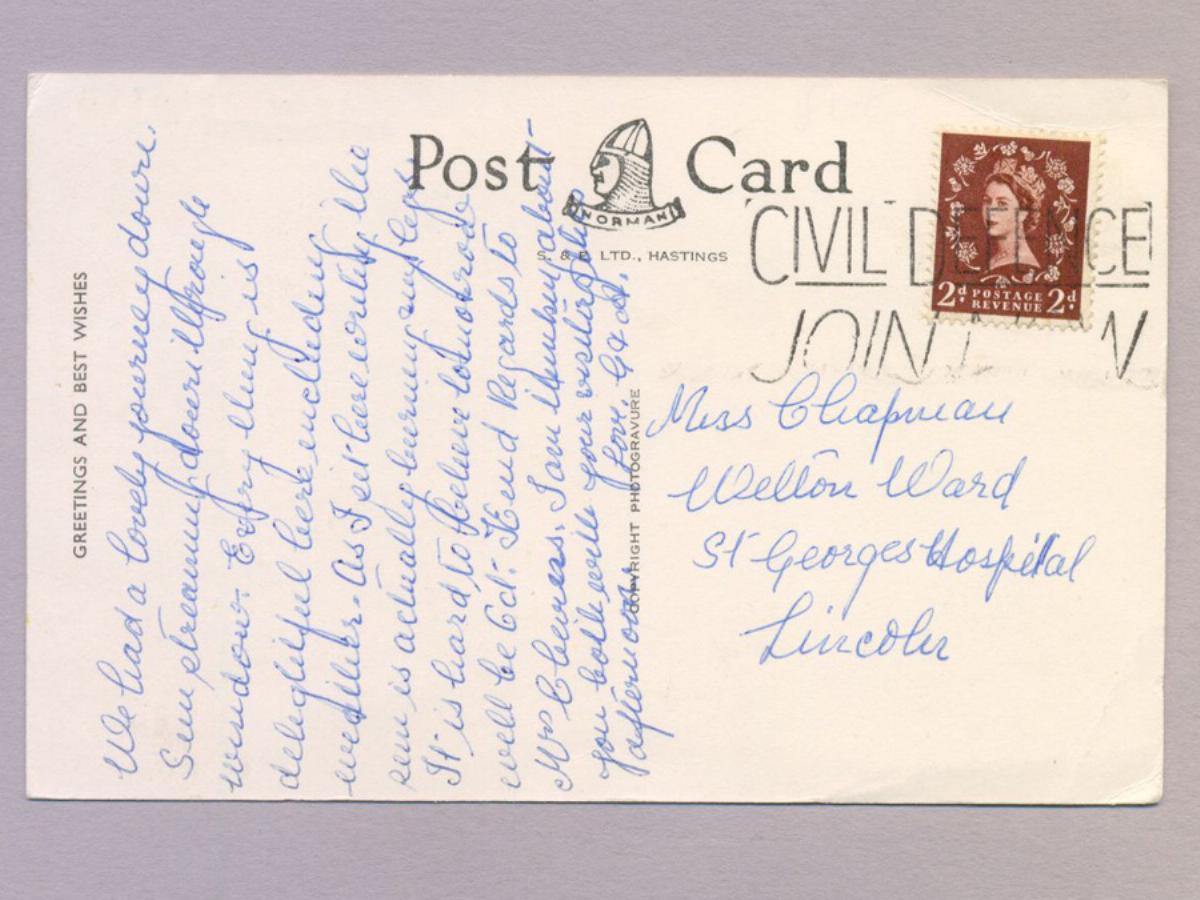 GREETINGS AND BEST WISHES
We had a lovely journey down.
Sun streaming down through
windows. Every thing is
delightful here including the
weather. As I sit here writing the
sun is actually burning my legs
It is hard to believe tomorrow
will be Oct. Kind Regards to
Mrs I am thinking about
you both with your visitors this
afternoon. Love,
Post Card
NORMAN
S. & E. LTD., HASTINGS
COPYRIGHT PHOTOGRAVURE
2d POSTAGE REVENUE 2d
CIVIL DEFENCE
JOIN NOW
Miss Chapman
Welton Ward
St Georges Hospital
Lincoln